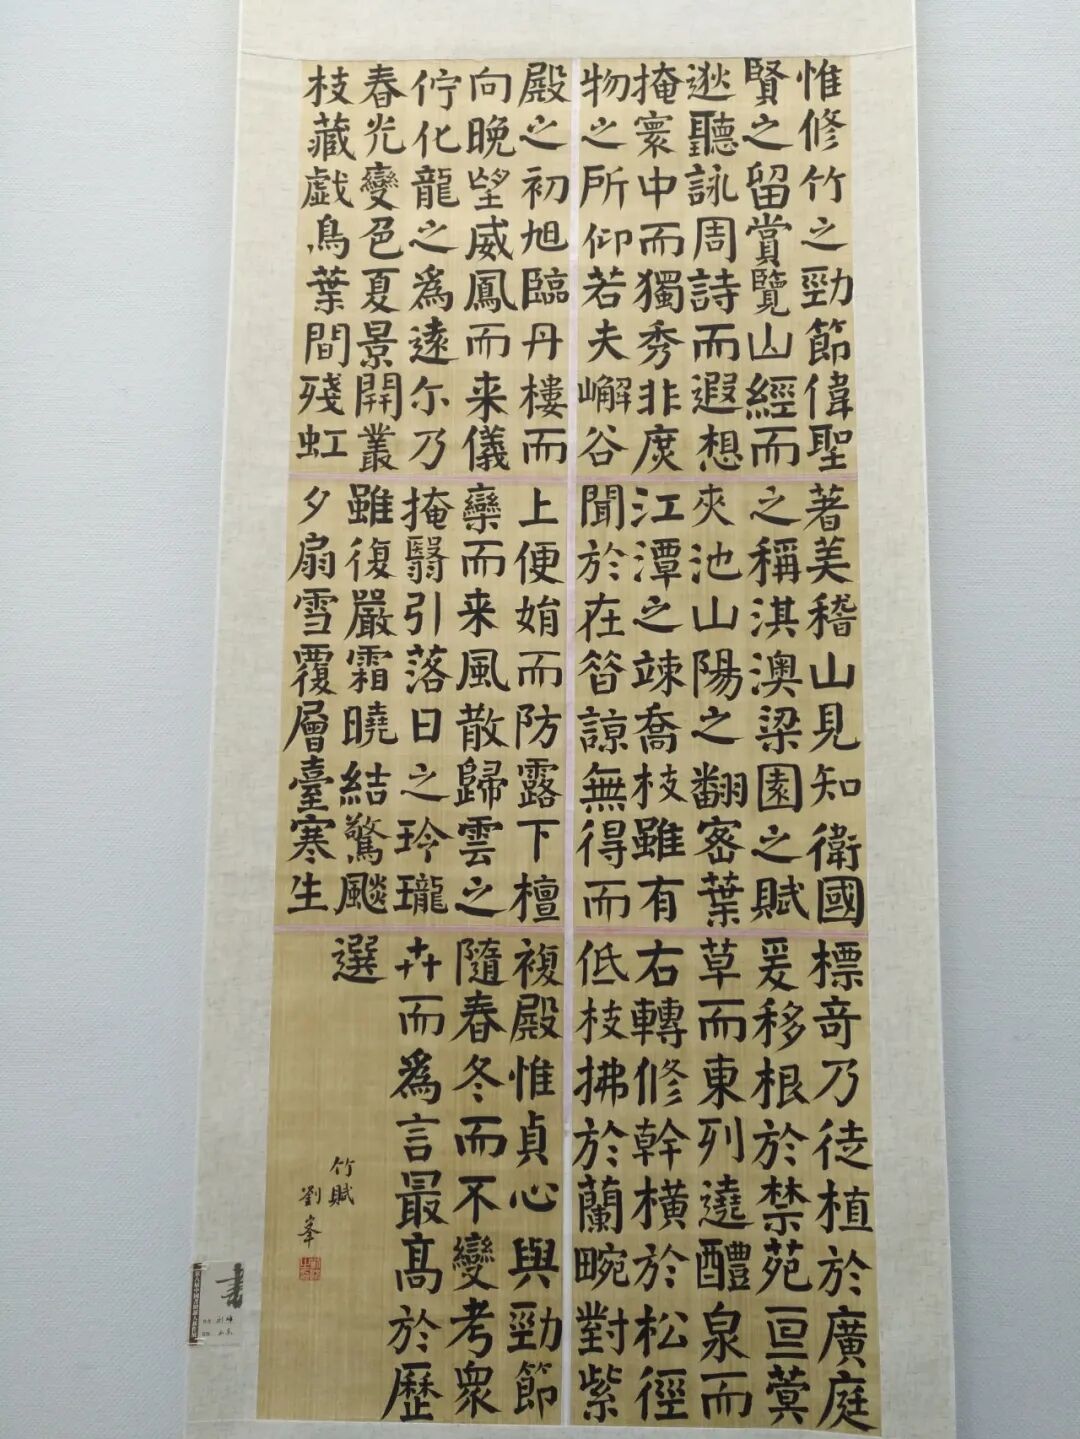 惟修竹之勁節偉聖
賢之留賞覽山經而
逖聽詠周詩而遐想
掩寰中而獨秀非庶
物之所仰若夫嶰谷
著美稽山見知衛國
之稱淇澳梁園之賦
夾池山陽之翻密葉
江潭之竦喬枝雖有
聞於在昝諒無得而
標奇乃徒植於廣庭
爰移根於禁苑亘蓂
草而東列遶醴泉而
右轉修幹橫於松徑
低枝拂於蘭畹對紫
殿之初旭臨丹樓而
向晚望威鳳而来儀
佇化龍之為遠尔乃
春光變色夏景開叢
枝藏戲鳥葉間殘虹
上便娟而防露下檀
欒而来風散歸雲之
掩翳引落日之玲瓏
雖復嚴霜曉結驚飈
夕扇雪覆層臺寒生
複殿惟貞心與勁節
隨春冬而不變考眾
卉而為言最高於歷
選
竹賦
劉峯
書